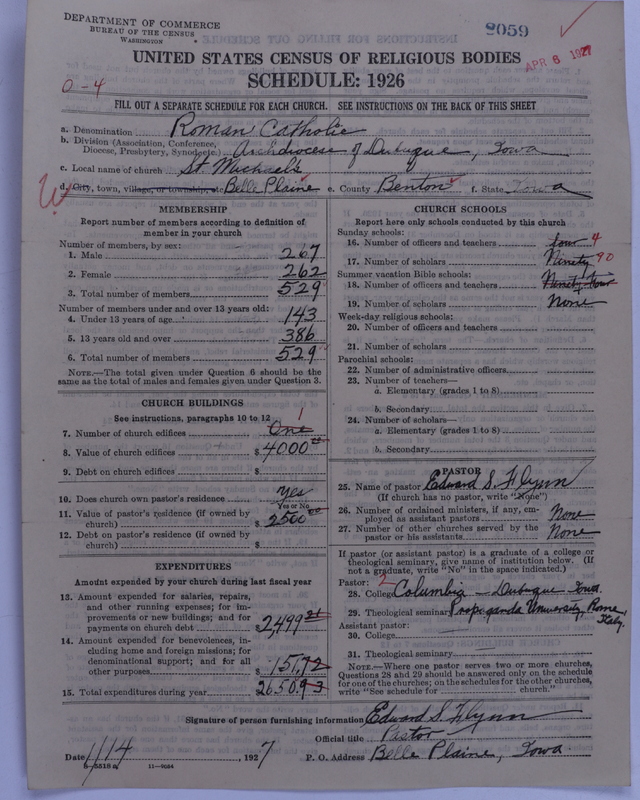 DEPARTMENT OF COMMERCE
BUREAU OF THE CENSUS
WASHINGTON
2059
APR 6 1927
UNITED STATES CENSUS OF RELIGIOUS BODIES
SCHEDULE: 1926
0-4
FILL OUT A SEPARATE SCHEDULE FOR EACH CHURCH. SEE INSTRUCTIONS ON THE BACK OF THIS SHEET
a. Denomination Roman Catholic
b. Division (Association, Conference, Diocese, Presbytery, Synod, etc.) Archdiocese of Dubuque, Iowa
c. Local name of church St. Michael's
d. City, town, village, or township, etc Belle Plaine e. County Benton f. State Iowa
MEMBERSHIP
Report number of members according to definition of member in your church
Number of members, by sex:
1. Male 267
2. Female 262
3. Total number of members 529
Number of members under and over 13 years old:
4. Under 13 years of age 143
5. 13 years old and over 386
6. Total number of members 529
NOTE.—The total given under Question 6 should be the same as the total of males and females given under Question 3.
CHURCH BUILDINGS
See instructions, paragraphs 10 to 12
7. Number of church edifices One 1
8. Value of church edifices $4000 00
9. Debt on church edifices $
10. Does church own pastor's residence Yes
Yes or No
11. Value of pastor's residence (if owned by church) $2500 00
12. Debt on pastor's residence (if owned by church) $
EXPENDITURES
Amount expended by your church during last fiscal year
13. Amount expended for salaries, repairs, and other running expenses; for improvements or new buildings; and for payments on church debt $2,499 21
14. Amount expended for benevolences, including home and foreign missions; for denominational support; and for all other purposes $151.72
15. Total expenditures during year 2650.93
CHURCH SCHOOLS
Report here only schools conducted by this church
Sunday schools:
16. Number of officers and teachers four 4
17. Number of scholars Ninety 90
Summer vacation Bible schools:
18. Number of officers and teachers Ninety four
19. Number of scholars None
Week-day religious schools:
20. Number of officers and teachers
21. Number of scholars
Parochial schools:
22. Number of administrative officers
23. Number of teachers—
a. Elementary (grades 1 to 8)
b. Secondary
24. Number of scholars—
a. Elementary (grades 1 to 8)
b. Secondary
PASTOR
25. Name of pastor Edward S. Flynn
(If church has no pastor, write "None")
26. Number of ordained ministers, if any, employed as assistant pastors None
27. Number of other churches served by the pastor or his assistants None
If pastor (or assistant pastor) is a graduate of a college or theological seminary, give name of institution below. (If not a graduate, write "No" in the space indicated.)
Pastor: 2
28. College Columbia – Dubuque Iowa.
29. Theological seminary Propaganda University, Rome, Italy.
Assistant pastor:
30. College
31. Theological seminary
NOTE.—Where one pastor serves two or more churches, Questions 28 and 29 should be answered only on the schedule for one of the churches; on the schedules for the other churches, write "See schedule for church."
Signature of person furnishing information Edward S. Flynn
Official title Pastor
Date 1/14, 1927 P. O. Address Belle Plaine, Iowa.
8-5518a 11-9084